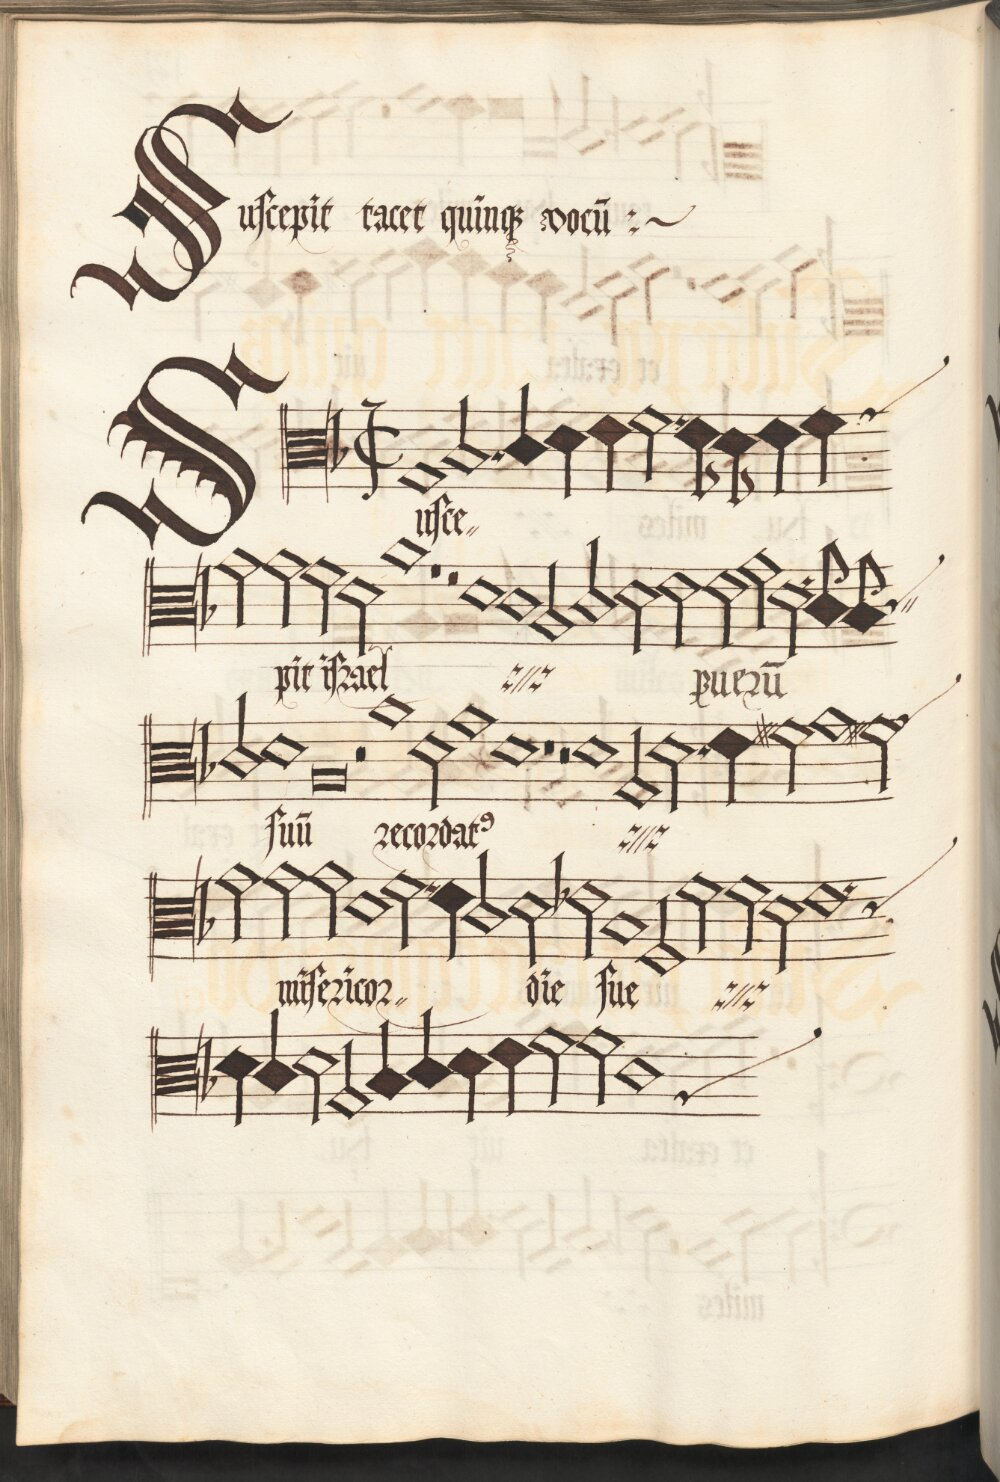 Suscepit tacet quinqꝫ vocū :~
Susce〃
pit israel 𝑖𝑗 puerū
suū recordatꝰ 𝑖𝑗
misericor〃 die sue 𝑖𝑗